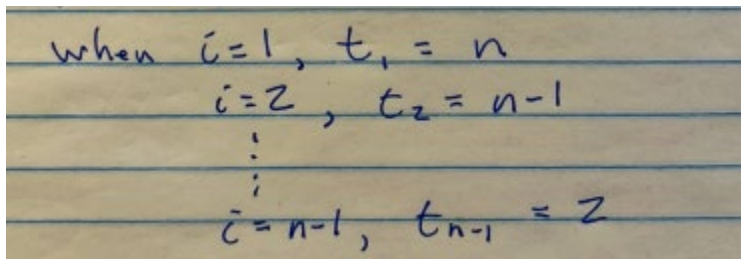 when i=1, t₁ = n
i=2, t₂ = n-1
⋮
i=n-1, tₙ₋₁ = 2